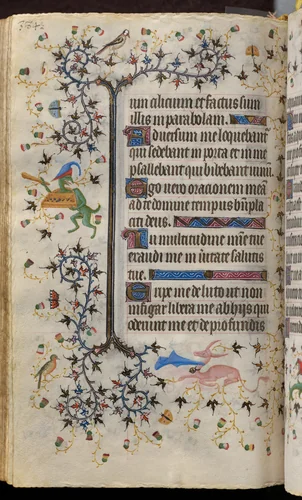 um cilicium et factus sum
illis in parabolam.
Adversum me loquebant
qui sedebant in porta et in me
psallebant qui bibebant vinū.
Ego vero orationem meā
ad te domine tempus bn̄pla
citi deus.
In multitudine mīe tue
exaudi me in v̄itate salutis
tue.
Eripe me de luto ut non
infigar libera me ab hijs qui
oderunt me et de profundis